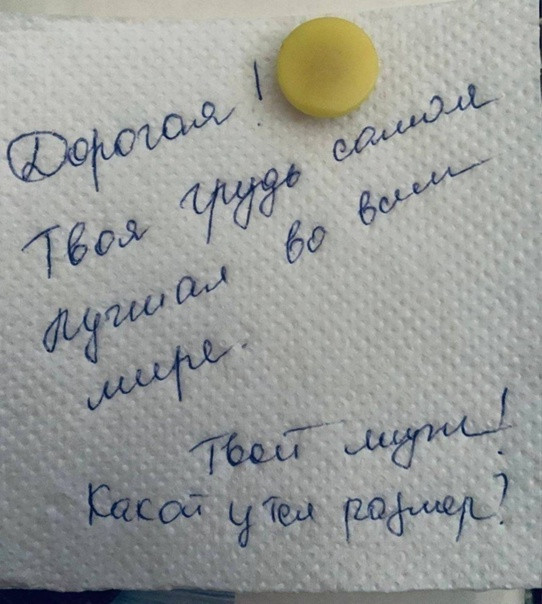 Дорогая!
Твоя грудь самая
лучшая во всём
мире.
Твой муж!
Какой у тея размер?